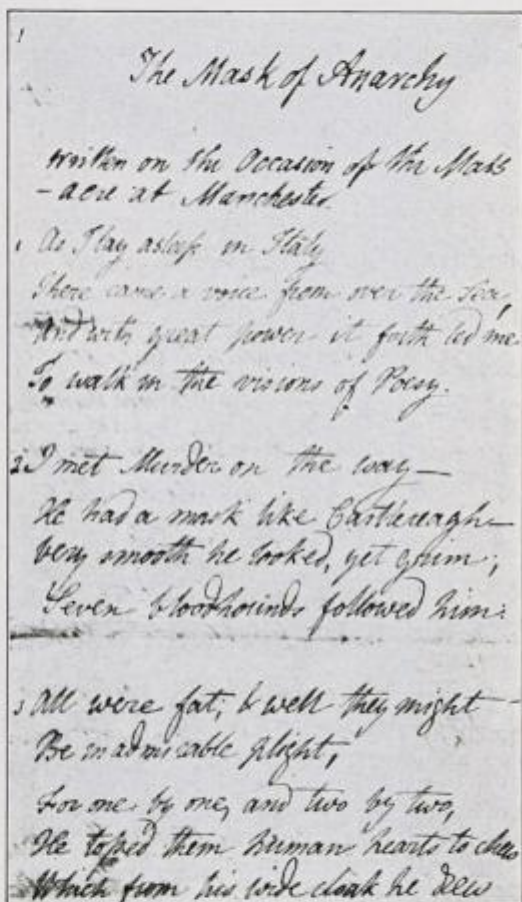 1
The Mask of Anarchy
written on the Occasion of the Mass
-acre at Manchester.
1 As I lay asleep in Italy
There came a voice from over the Sea,
And with great power it forth led me
To walk in the visions of Poesy.
2 I met Murder on the way—
He had a mask like Castlereagh—
Very smooth he looked, yet grim;
Seven bloodhounds followed him:
3 All were fat; & well they might
Be in admirable plight,
For one by one, and two by two,
He tossed them human hearts to chew
Which from his wide cloak he drew